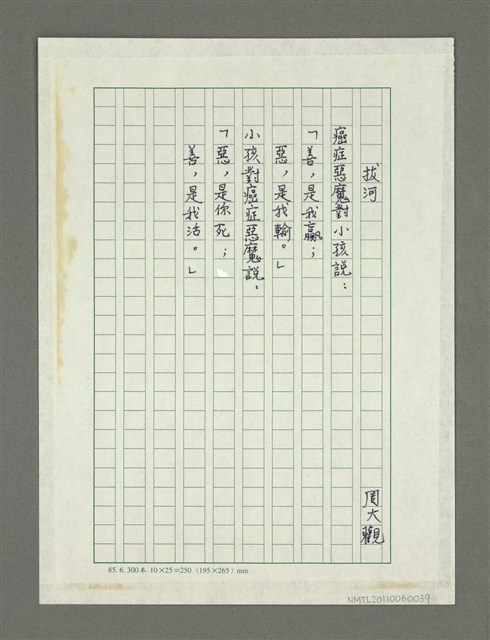 拔河
周大觀
癌症惡魔對小孩說：
「善，是我贏；
惡，是我輸。」
小孩對癌症惡魔說：
「惡，是你死；
善，是我活。」
85. 6. 300本 10×25=250 (195×265) mm
NMTL20110060039